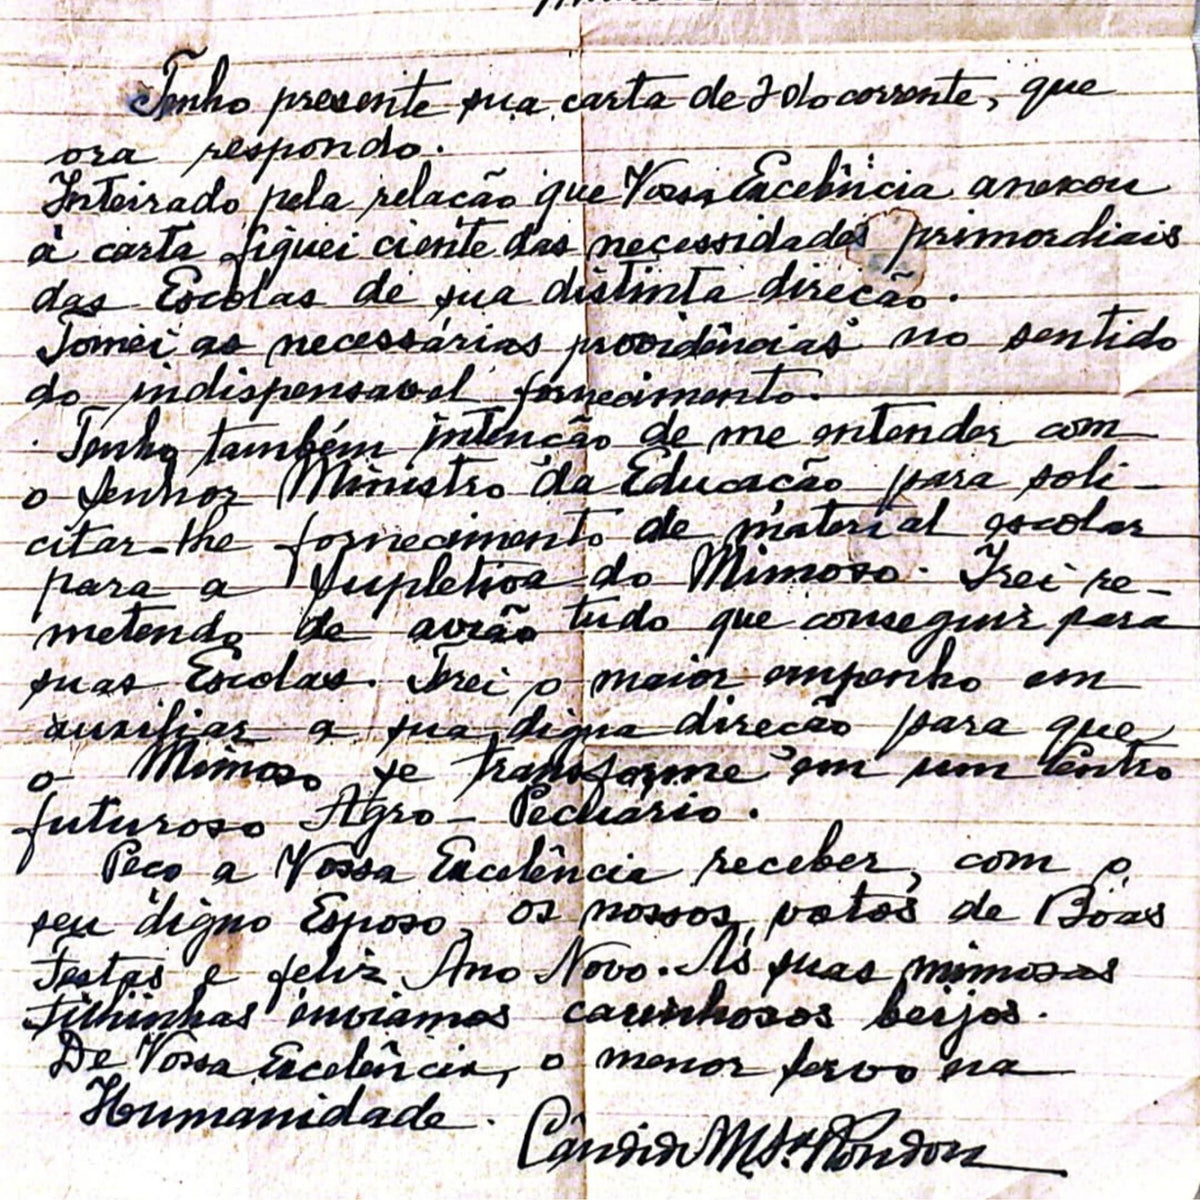 Tenho presente sua carta de 2 do corrente, que
ora respondo.
Inteirado pela relação que Vossa Excelência anexou
à carta fiquei ciente das necessidades primordiais
das Escolas de sua distinta direção.
Tomei as necessárias providências no sentido
do indispensavel fornecimento.
Tenho também intenção de me entender com
o Senhor Ministro da Educação para soli-
citar-lhe fornecimento de material escolar
para a Supletiva do Mimoso. Irei re-
metendo de avião tudo que conseguir para
suas Escolas. Farei o maior empenho em
auxiliar a sua digna direcão para que
o Mimoso se transforme em um Centro
futuroso Agro-Pecuário.
Peço a Vossa Excelência receber, com o
seu digno Esposo, os nossos votos de Bôas
Festas e feliz Ano Novo. Às suas mimosas
Filhinhas enviamos carinhosos beijos.
De Vossa Excelência, o menor servo na
Humanidade.
Cândido M. S. Rondon